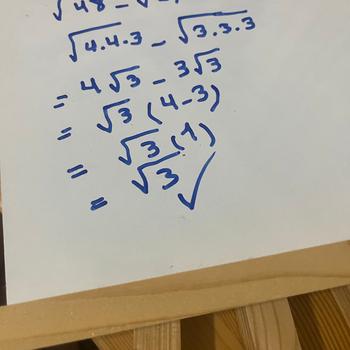 √48 -
√4.4.3 - √3.3.3
= 4√3 - 3√3
= √3 (4-3)
= √3 (1)
= √3 ✓